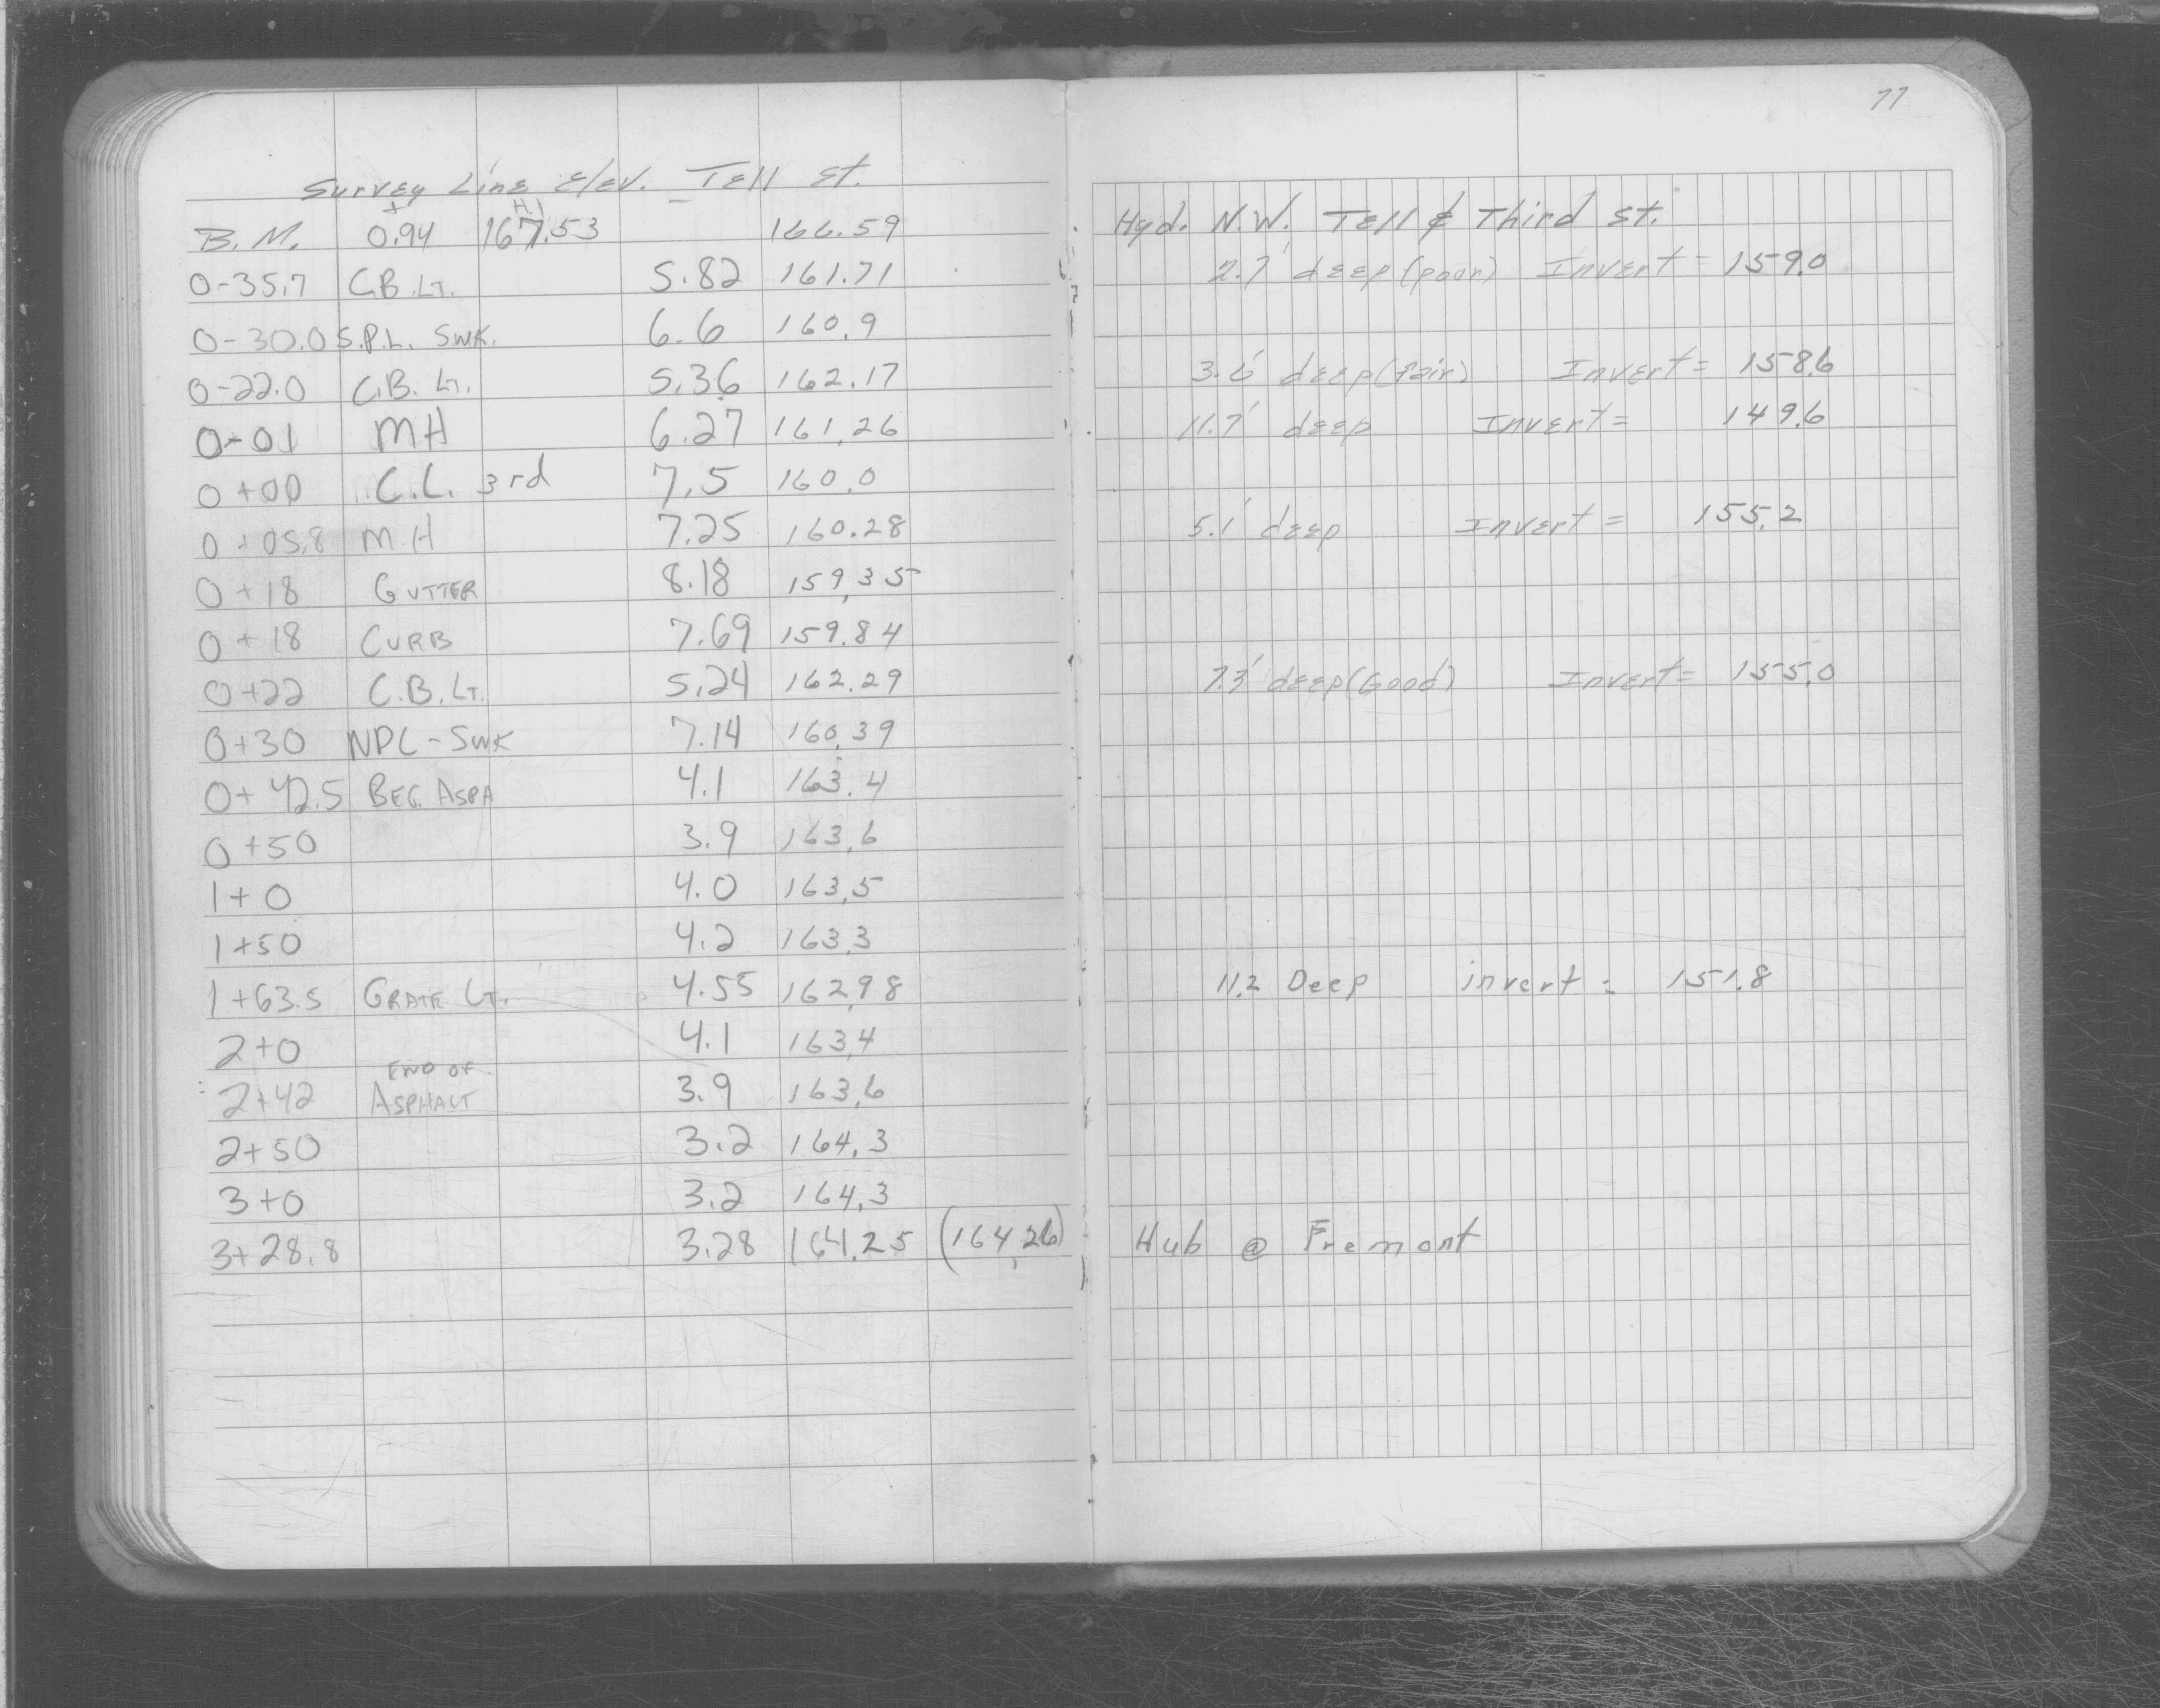 77
Survey Line Elev. Tell St.
+ H.I
B.M. 0.94 167.53 166.59 Hyd. N.W. Tell & Third St.
0-35.7 C.B. LT. 5.82 161.71 2.7' deep (poor) Invert = 159.0
0-30.0 S.P.L. SWK. 6.6 160.9
0-22.0 C.B. LT. 5.36 162.17 3.6' deep (fair) Invert = 158.6
0-01 MH 6.27 161.26 11.7' deep Invert = 149.6
0+00 C.L. 3rd 7.5 160.0
0+05.8 M.H 7.25 160.28 5.1' deep Invert = 155.2
0+18 GUTTER 8.18 159.35
0+18 CURB 7.69 159.84
0+22 C.B. LT. 5.24 162.29 7.3' deep (Good) Invert = 155.0
0+30 NPL-SWK 7.14 160.39
0+42.5 BEG. ASPH 4.1 163.4
0+50 3.9 163.6
1+0 4.0 163.5
1+50 4.2 163.3
1+63.5 GRATE LT. 4.55 162.98 11.2 Deep invert = 151.8
2+0 4.1 163.4
END OF
2+42 ASPHALT 3.9 163.6
2+50 3.2 164.3
3+0 3.2 164.3
3+28.8 3.28 164.25 (164.26) Hub @ Fremont